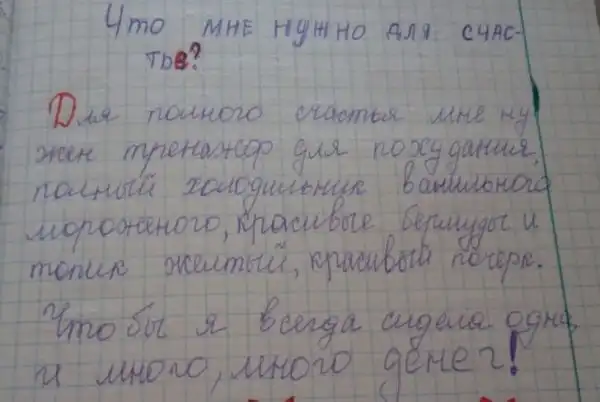 Что мне нужно для счас-
тья?
Для полного счастья мне ну
жен тренажор для похудания,
полный холодильник ванильного
мороженого, красивые бермуды и
топик желтый, красивый почерк.
Что бы я всегда сидела одна,
и много, много денег!